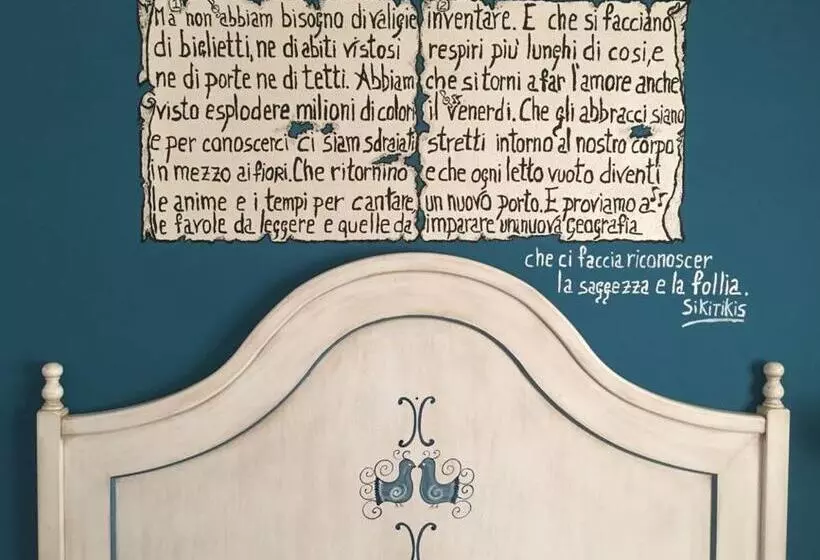 1
Ma non abbiam bisogno di valigie
di biglietti, ne di abiti vistosi
ne di porte ne di tetti. Abbiam
visto esplodere milioni di colori
e per conoscerci ci siam sdraiati
in mezzo ai fiori. Che ritornino
le anime e i tempi per cantare,
le favole da leggere e quelle da
2
inventare. E che si facciano
respiri più lunghi di così, e
che si torni a far l'amore anche
il venerdì. Che gli abbracci siano
stretti intorno al nostro corpo
e che ogni letto vuoto diventi
un nuovo porto. E proviamo a
imparare un nuova geografia
che ci faccia riconoscer
la saggezza e la follia.
SIKITIKIS